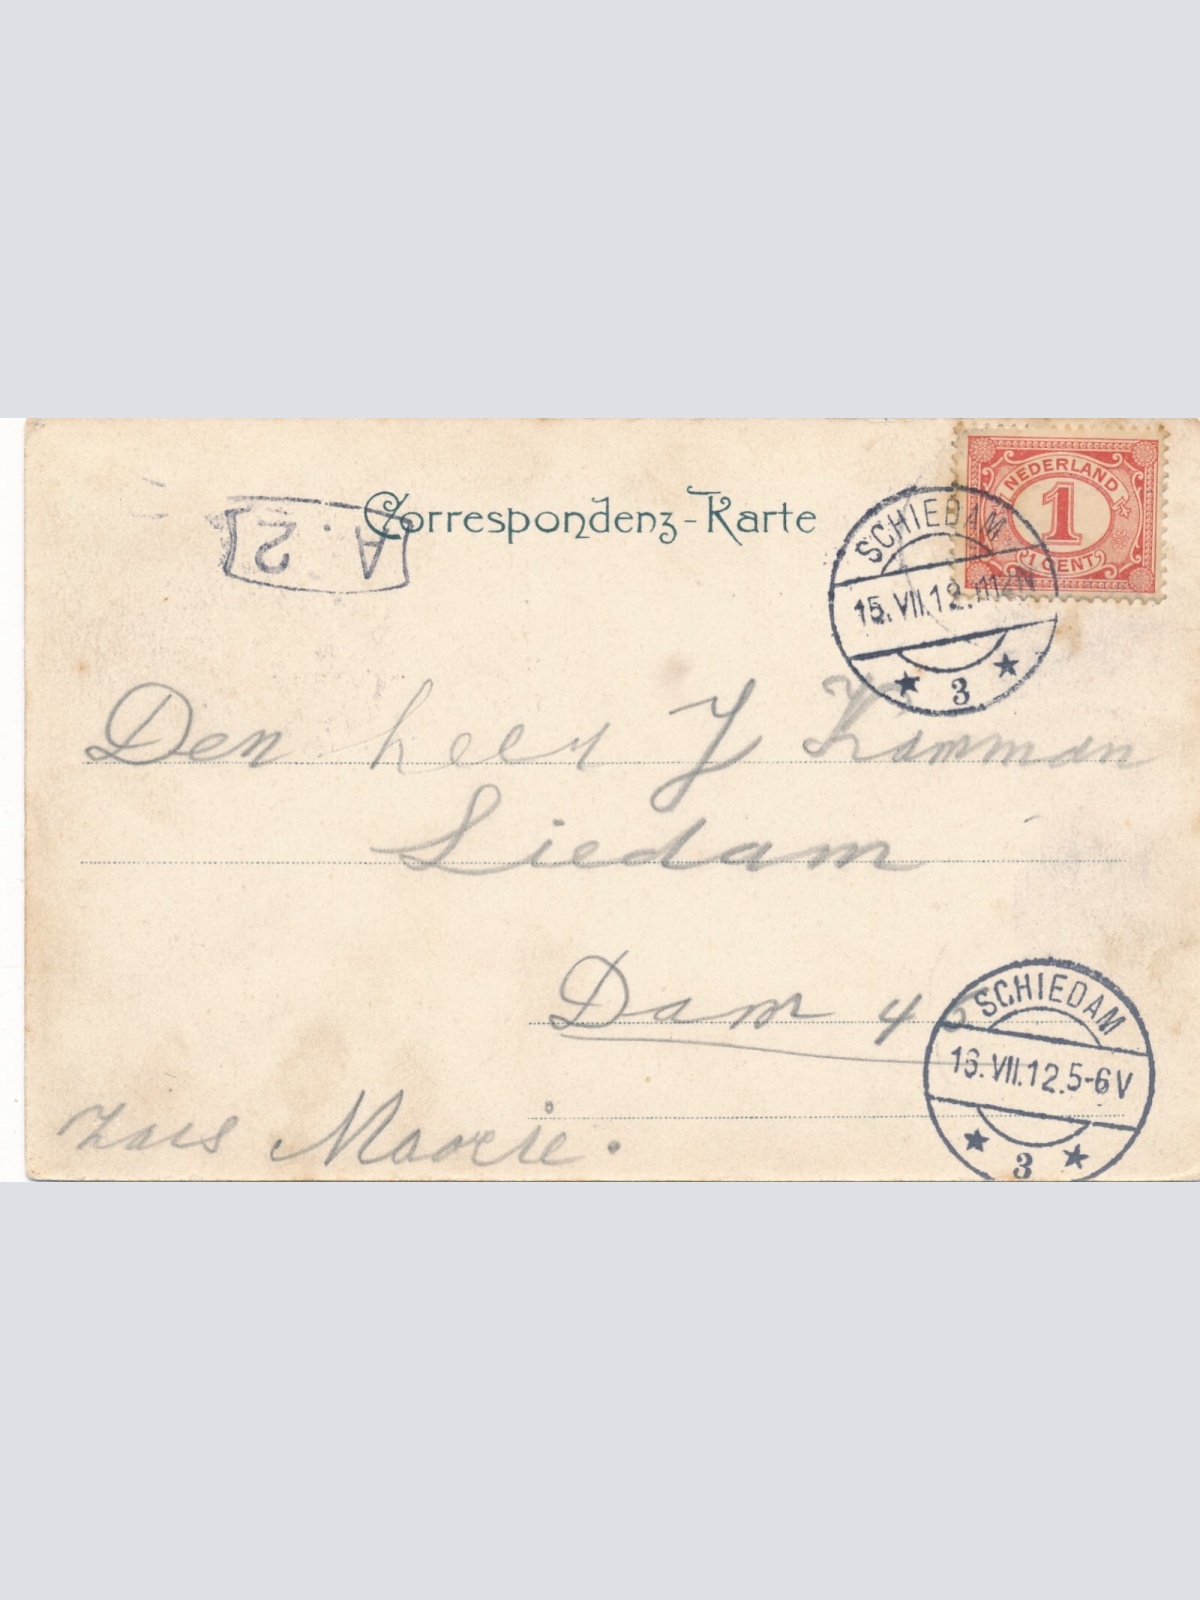 Correspondenz-Karte
A. 2
NEDERLAND
1
1 CENT
SCHIEDAM
15.VII.12. 11-12N
3
Den heer J Kamman
Siedam
Dam 46
SCHIEDAM
16.VII.12.5-6V
3
Maorie.